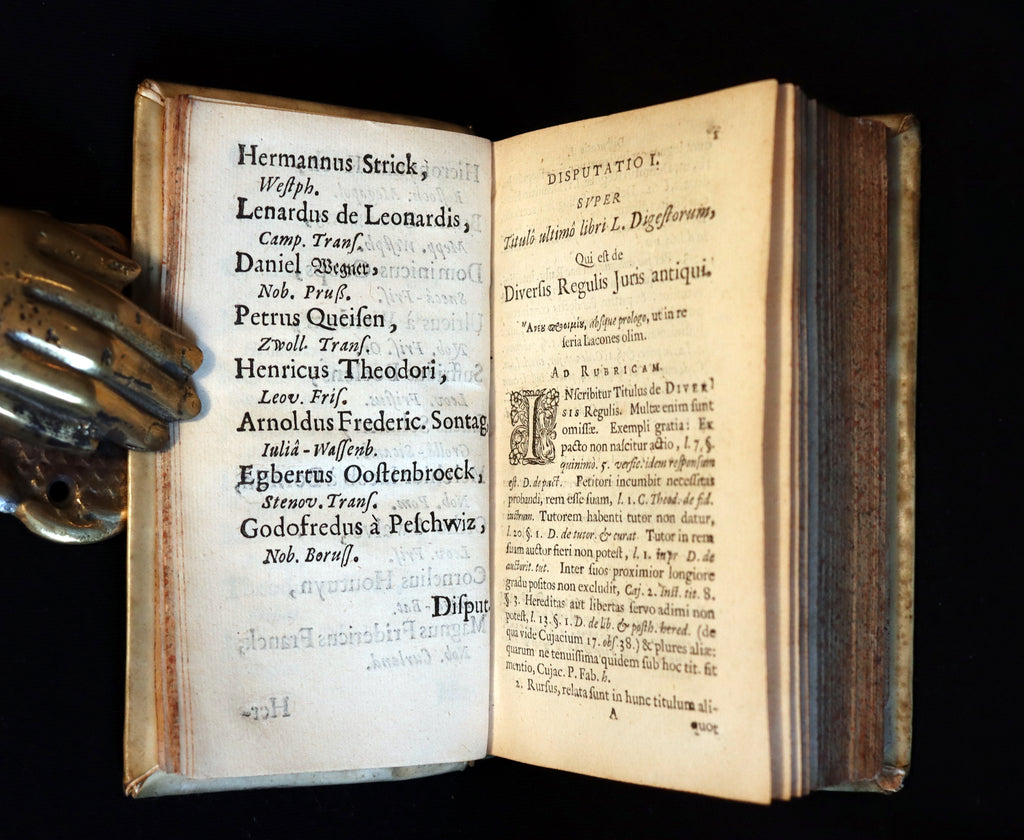 Hermannus Strick,
Weſtph.
Lenardus de Leonardis,
Camp. Tranſ.
Daniel Wegner,
Nob. Pruß.
Petrus Queiſen,
Zwoll. Tranſ.
Henricus Theodori,
Leov. Friſ.
Arnoldus Frederic. Sontag
Iuliâ-Waſſenb.
Egbertus Ooſtenbroeck,
Stenov. Tranſ.
Godofredus à Peſchwiz,
Nob. Boruſſ.
Diſput
DISPUTATIO I.
SVPER
Titulô ultimô libri L. Digeſtorum,
Qui eſt de
Diverſis Regulis Juris antiqui.
abſque prologo, ut in re
ſeria Lacones olim.
AD RUBRICAM.
INſcribitur Titulus de DIVER
SIS Regulis. Multæ enim ſunt
omiſſæ. Exempli gratia: Ex
pacto non naſcitur actio, l. 7. §.
quinimò. 5. verſic. idem reſponſum
eſt. D. de pact. Petitori incumbit neceſſitas
probandi, rem eſſe ſuam, l. 1. C. Theod. de fid.
Tutorem habenti tutor non datur,
l. 20. §. 1. D. de tutor. & curat. Tutor in rem
ſuam auctor fieri non poteſt, l. 1. D. de
auctorit. tut. Inter ſuos proximior longiore
gradu poſitos non excludit, Caj. 2. Inſt. tit. 8.
§. 3. Hereditas aut libertas ſervo adimi non
poteſt, l. 13. §. 1. D. de lib. & poſth. hered. (de
qua vide Cujacium 17. obſ. 38.) & plures aliæ:
quarum ne tenuiſſima quidem ſub hoc tit. fit
mentio, Cujac. P. Fab. h.
2. Rurſus, relata ſunt in hunc titulum ali-
A
quot